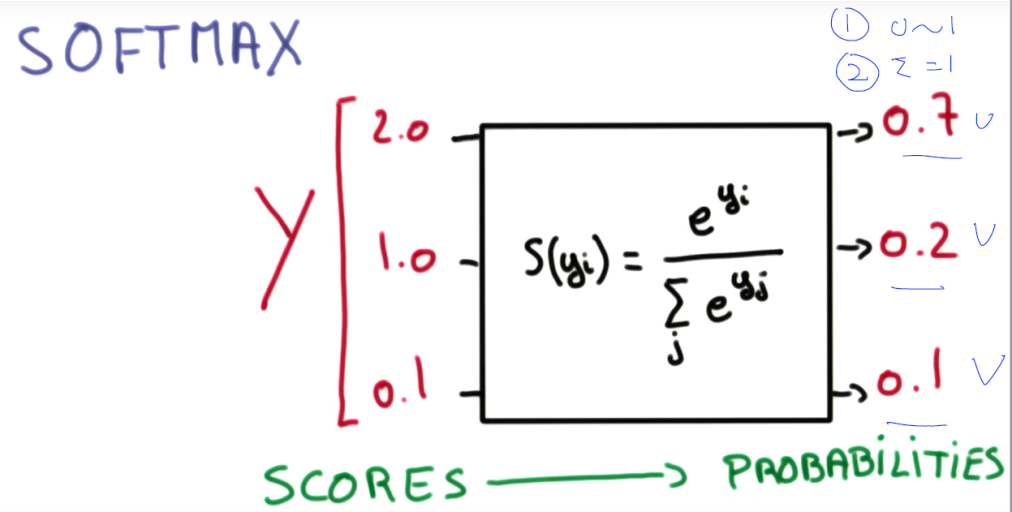 SOFTMAX
① 0~1
② Σ=1
Y
2.0
1.0
0.1
S(yi) = e^yi / Σj e^yj
→ 0.7 ∪
→ 0.2 V
→ 0.1 V
SCORES → PROBABiLiTiES